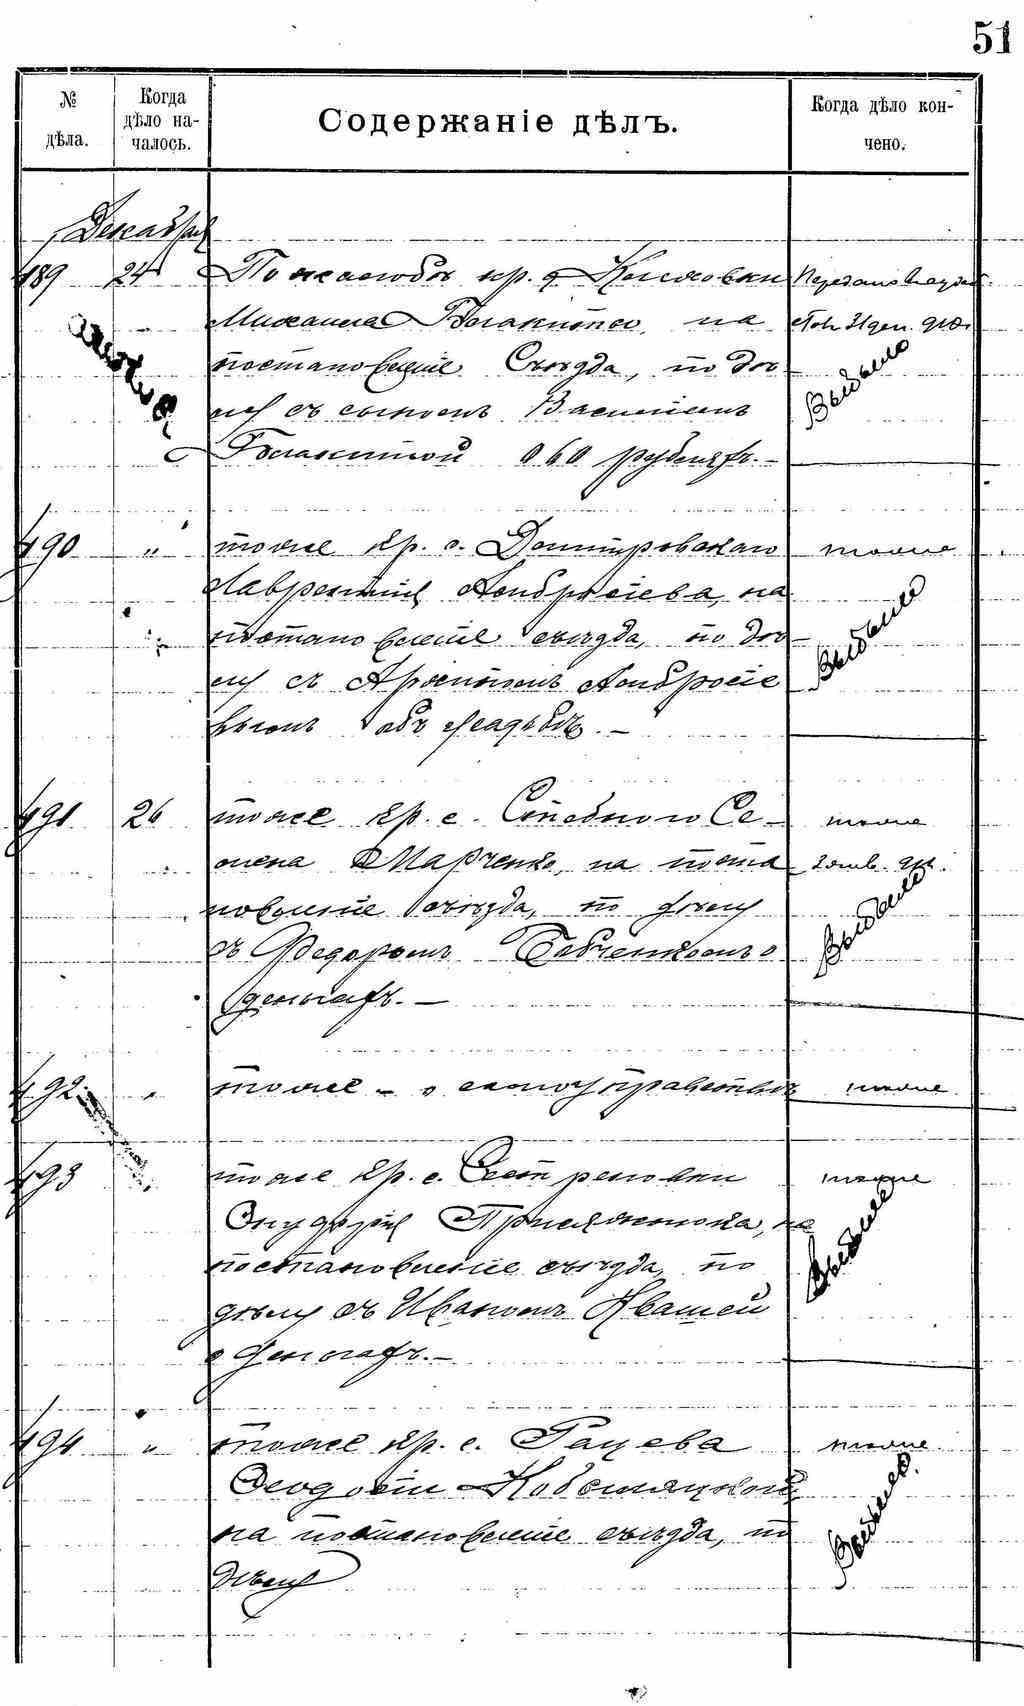 51
№ дѣла.
Когда дѣло началось.
Содержаніе дѣлъ.
Когда дѣло кончено.
Декабря
489 24 По жалобѣ кр. Михаила на
постановленіе Съѣзда, по дѣ-
лу съ сыномъ Василіемъ
о 60 рубляхъ.—
Выбыло
490 " тоже кр. с. Дмитровскаго
Лаврентія Амвросіева, на
постановленіе съѣзда, по дѣ-
лу съ Амвросіе
вымъ объ усадьбѣ.—
тоже
Выбыло
491 26 тоже кр. с. Стебного Се-
мена Марченко, на поста
новленіе съѣзда, по дѣлу
съ Федоромъ Бабченкомъ о
деньгахъ.—
тоже
Выбыло
492 " тоже - о самоуправствѣ
тоже
493 " тоже кр. с.
Онуфрія Присяжнюка, на
постановленіе съѣзда, по
дѣлу съ Иваномъ Квашей
о деньгахъ.—
тоже
Выбыло
494 " тоже кр. с. Рацева
Феодосіи
на постановленіе съѣзда, по
дѣлу
тоже
Выбыло.